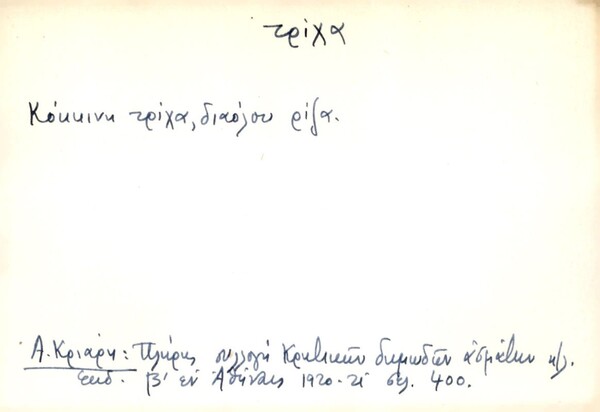 τρίχα
Κόκκινη τρίχα, διαόλου ρίζα.
Α. Κριάρη: Πλήρης συλλογή Κρητικών δημωδών ᾀσμάτων κ.λ.
Έκδ. β' εν Αθήναις 1920 σελ. 400.